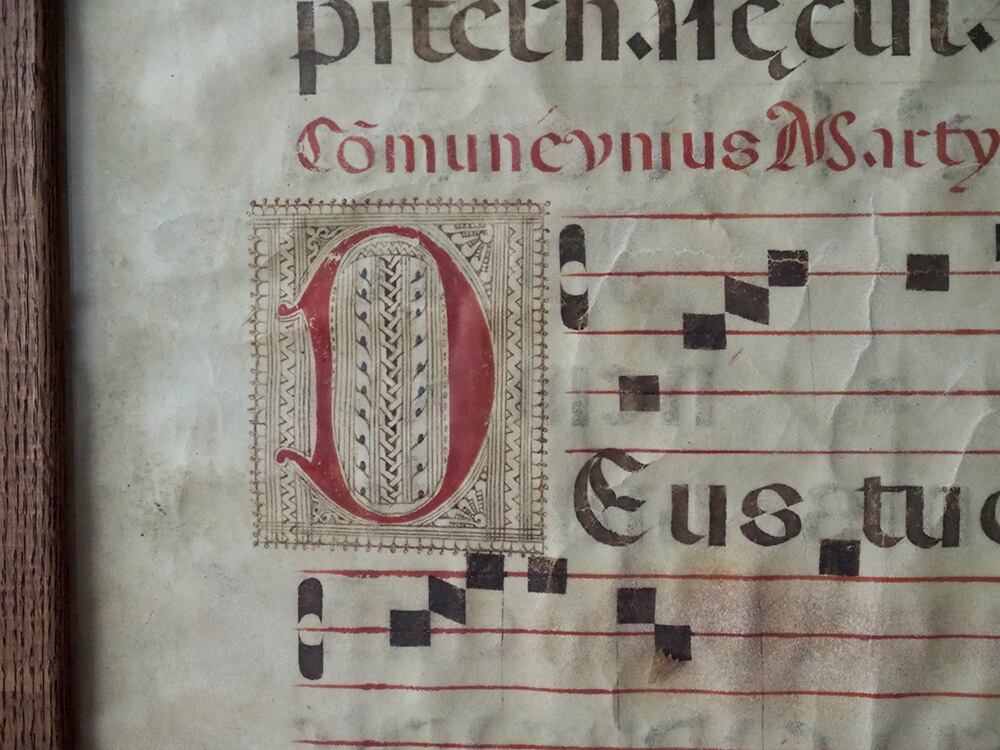 pitern. ı secul
Cõmune vnius Marty
DEus tuo